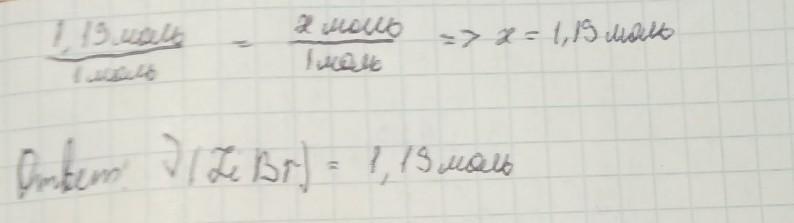 1,19 моль / 1 моль = x моль / 1 моль => x = 1,19 моль
Ответ: ν(LiBr) = 1,19 моль